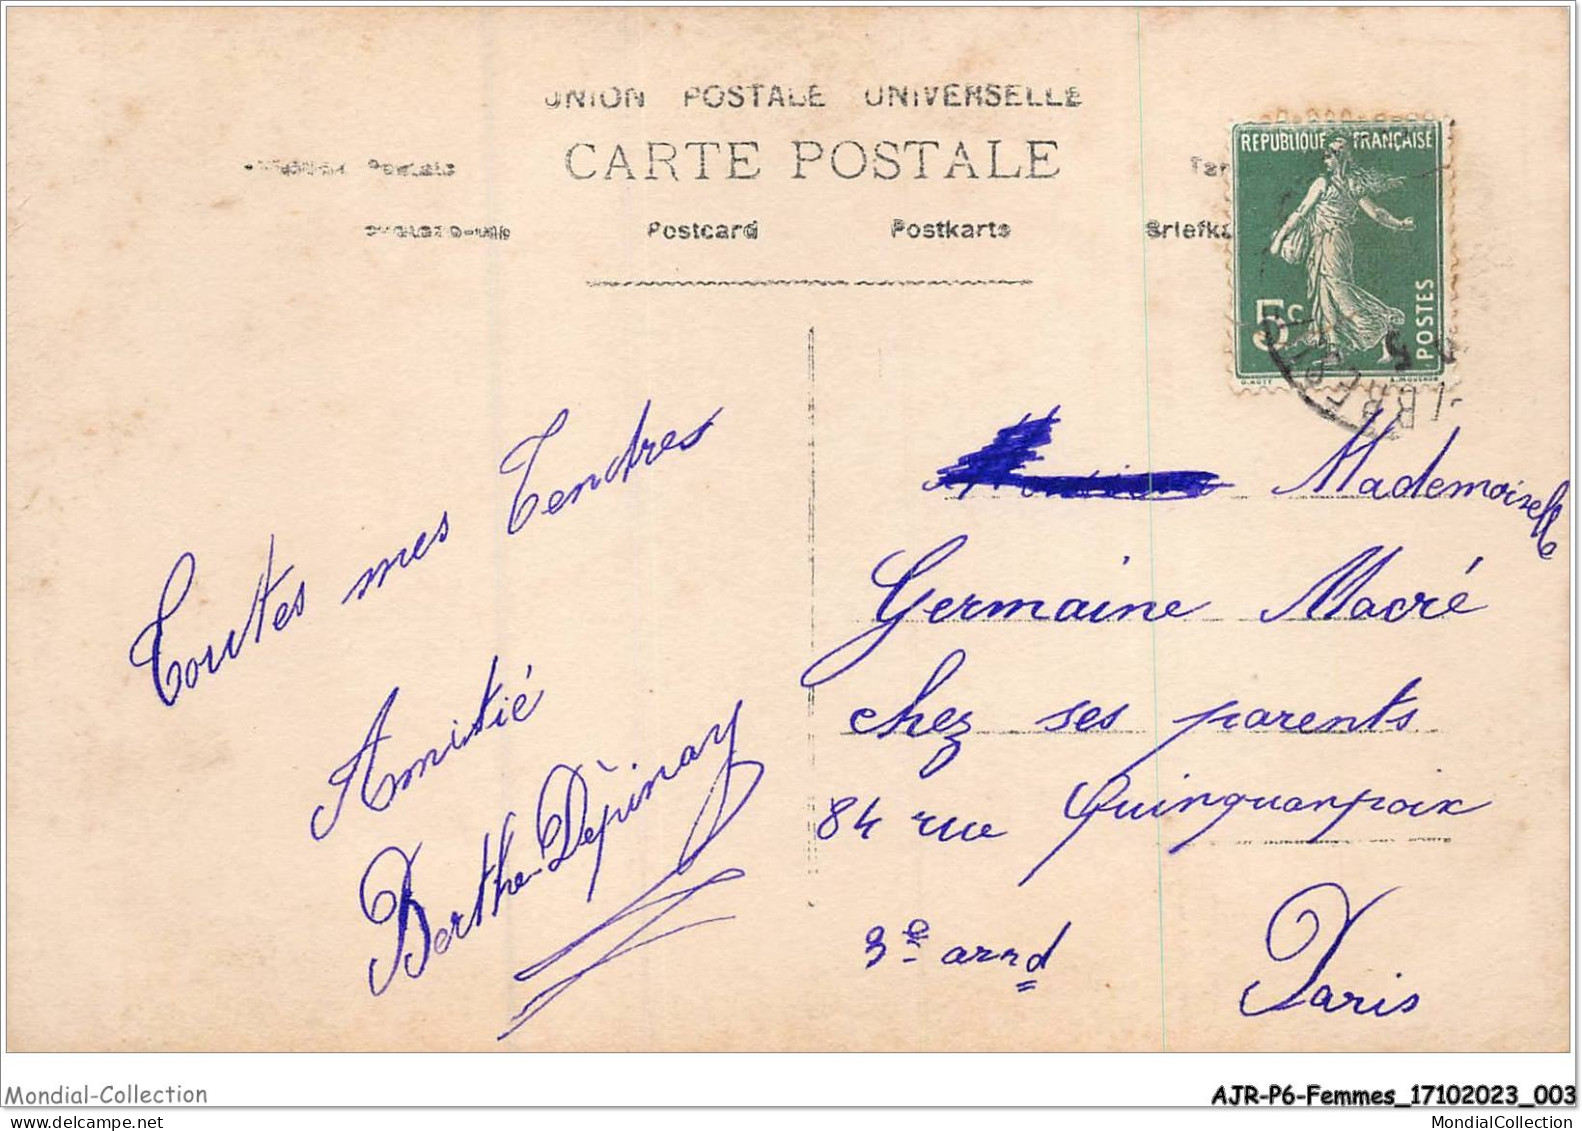 UNION POSTALE UNIVERSELLE
CARTE POSTALE
Postcard Postkarte
REPUBLIQUE FRANÇAISE
5c
POSTES
Toutes mes Tendres
Amitié
Berthe Dépinay
Mademoiselle
Germaine Macré
chez ses parents
84 rue Quinquanpoix
3e arrd
Paris
Mondial-Collection
AJR-P6-Femmes_17102023_003
MondialCollection